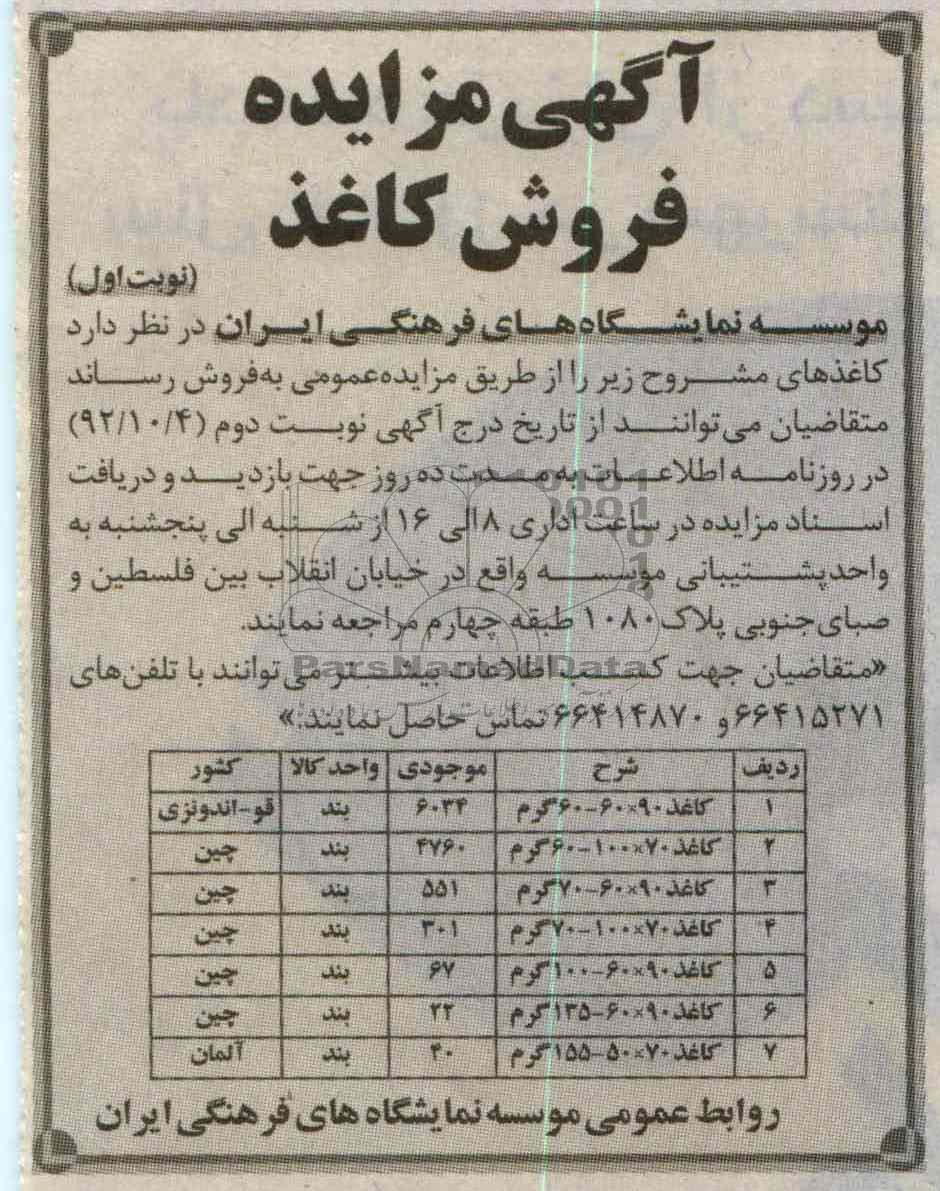 آگهی مزایده
فروش کاغذ
(نوبت اول)
موسسه نمایشگاه‌های فرهنگی ایران در نظر دارد
کاغذهای مشروح زیر را از طریق مزایده عمومی به‌فروش رساند
متقاضیان می‌توانند از تاریخ درج آگهی نوبت دوم (۹۲/۱۰/۴)
در روزنامه اطلاعات به مدت ده روز جهت بازدید و دریافت
اسناد مزایده در ساعت اداری ۸ الی ۱۶ از شنبه الی پنجشنبه به
واحد پشتیبانی موسسه واقع در خیابان انقلاب بین فلسطین و
صبای جنوبی پلاک ۱۰۸۰ طبقه چهارم مراجعه نمایند.
«متقاضیان جهت کسب اطلاعات بیشتر می‌توانند با تلفن‌های
۶۶۴۱۵۲۷۱ و ۶۶۴۱۴۸۷۰ تماس حاصل نمایند.»
ردیف شرح موجودی واحد کالا کشور
۱ کاغذ ۹۰×۶۰-۶۰ گرم ۶۰۳۴ بند قو-اندونزی
۲ کاغذ ۷۰×۱۰۰-۶۰ گرم ۴۷۶۰ بند چین
۳ کاغذ ۹۰×۶۰-۷۰ گرم ۵۵۱ بند چین
۴ کاغذ ۷۰×۱۰۰-۷۰ گرم ۳۰۱ بند چین
۵ کاغذ ۹۰×۶۰-۱۰۰ گرم ۶۷ بند چین
۶ کاغذ ۹۰×۶۰-۱۳۵ گرم ۲۲ بند چین
۷ کاغذ ۷۰×۵۰-۱۵۵ گرم ۴۰ بند آلمان
روابط عمومی موسسه نمایشگاه های فرهنگی ایران
ParsNamadData